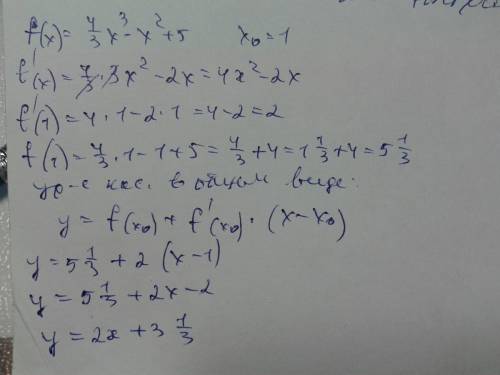 f(x) = 4/3 x³ - x² + 5    x₀ = 1
f'(x) = 4/3 · 3x² - 2x = 4x² - 2x
f'(1) = 4 · 1 - 2 · 1 = 4 - 2 = 2
f(1) = 4/3 · 1 - 1 + 5 = 4/3 + 4 = 1 1/3 + 4 = 5 1/3
ур-е кас. в общем виде:
y = f(x₀) + f'(x₀) · (x - x₀)
y = 5 1/3 + 2 (x - 1)
y = 5 1/3 + 2x - 2
y = 2x + 3 1/3